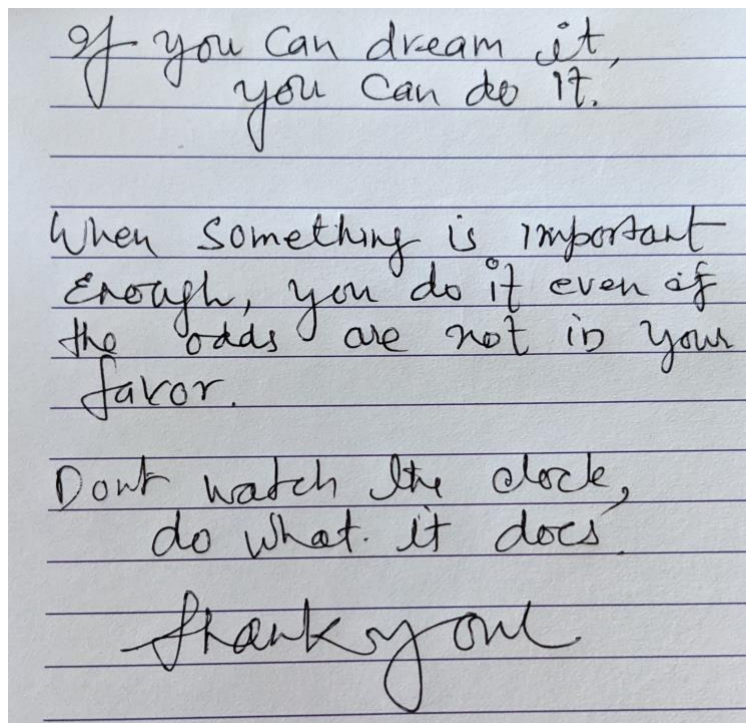 If you can dream it,
you can do it.
When something is important
Enough, you do it even if
the odds are not in your
favor.
Dont watch the clock,
do what. it does.
Thank you